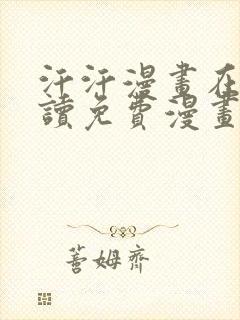 汗汗漫畫在
讀免費漫畫
蓍姆齊